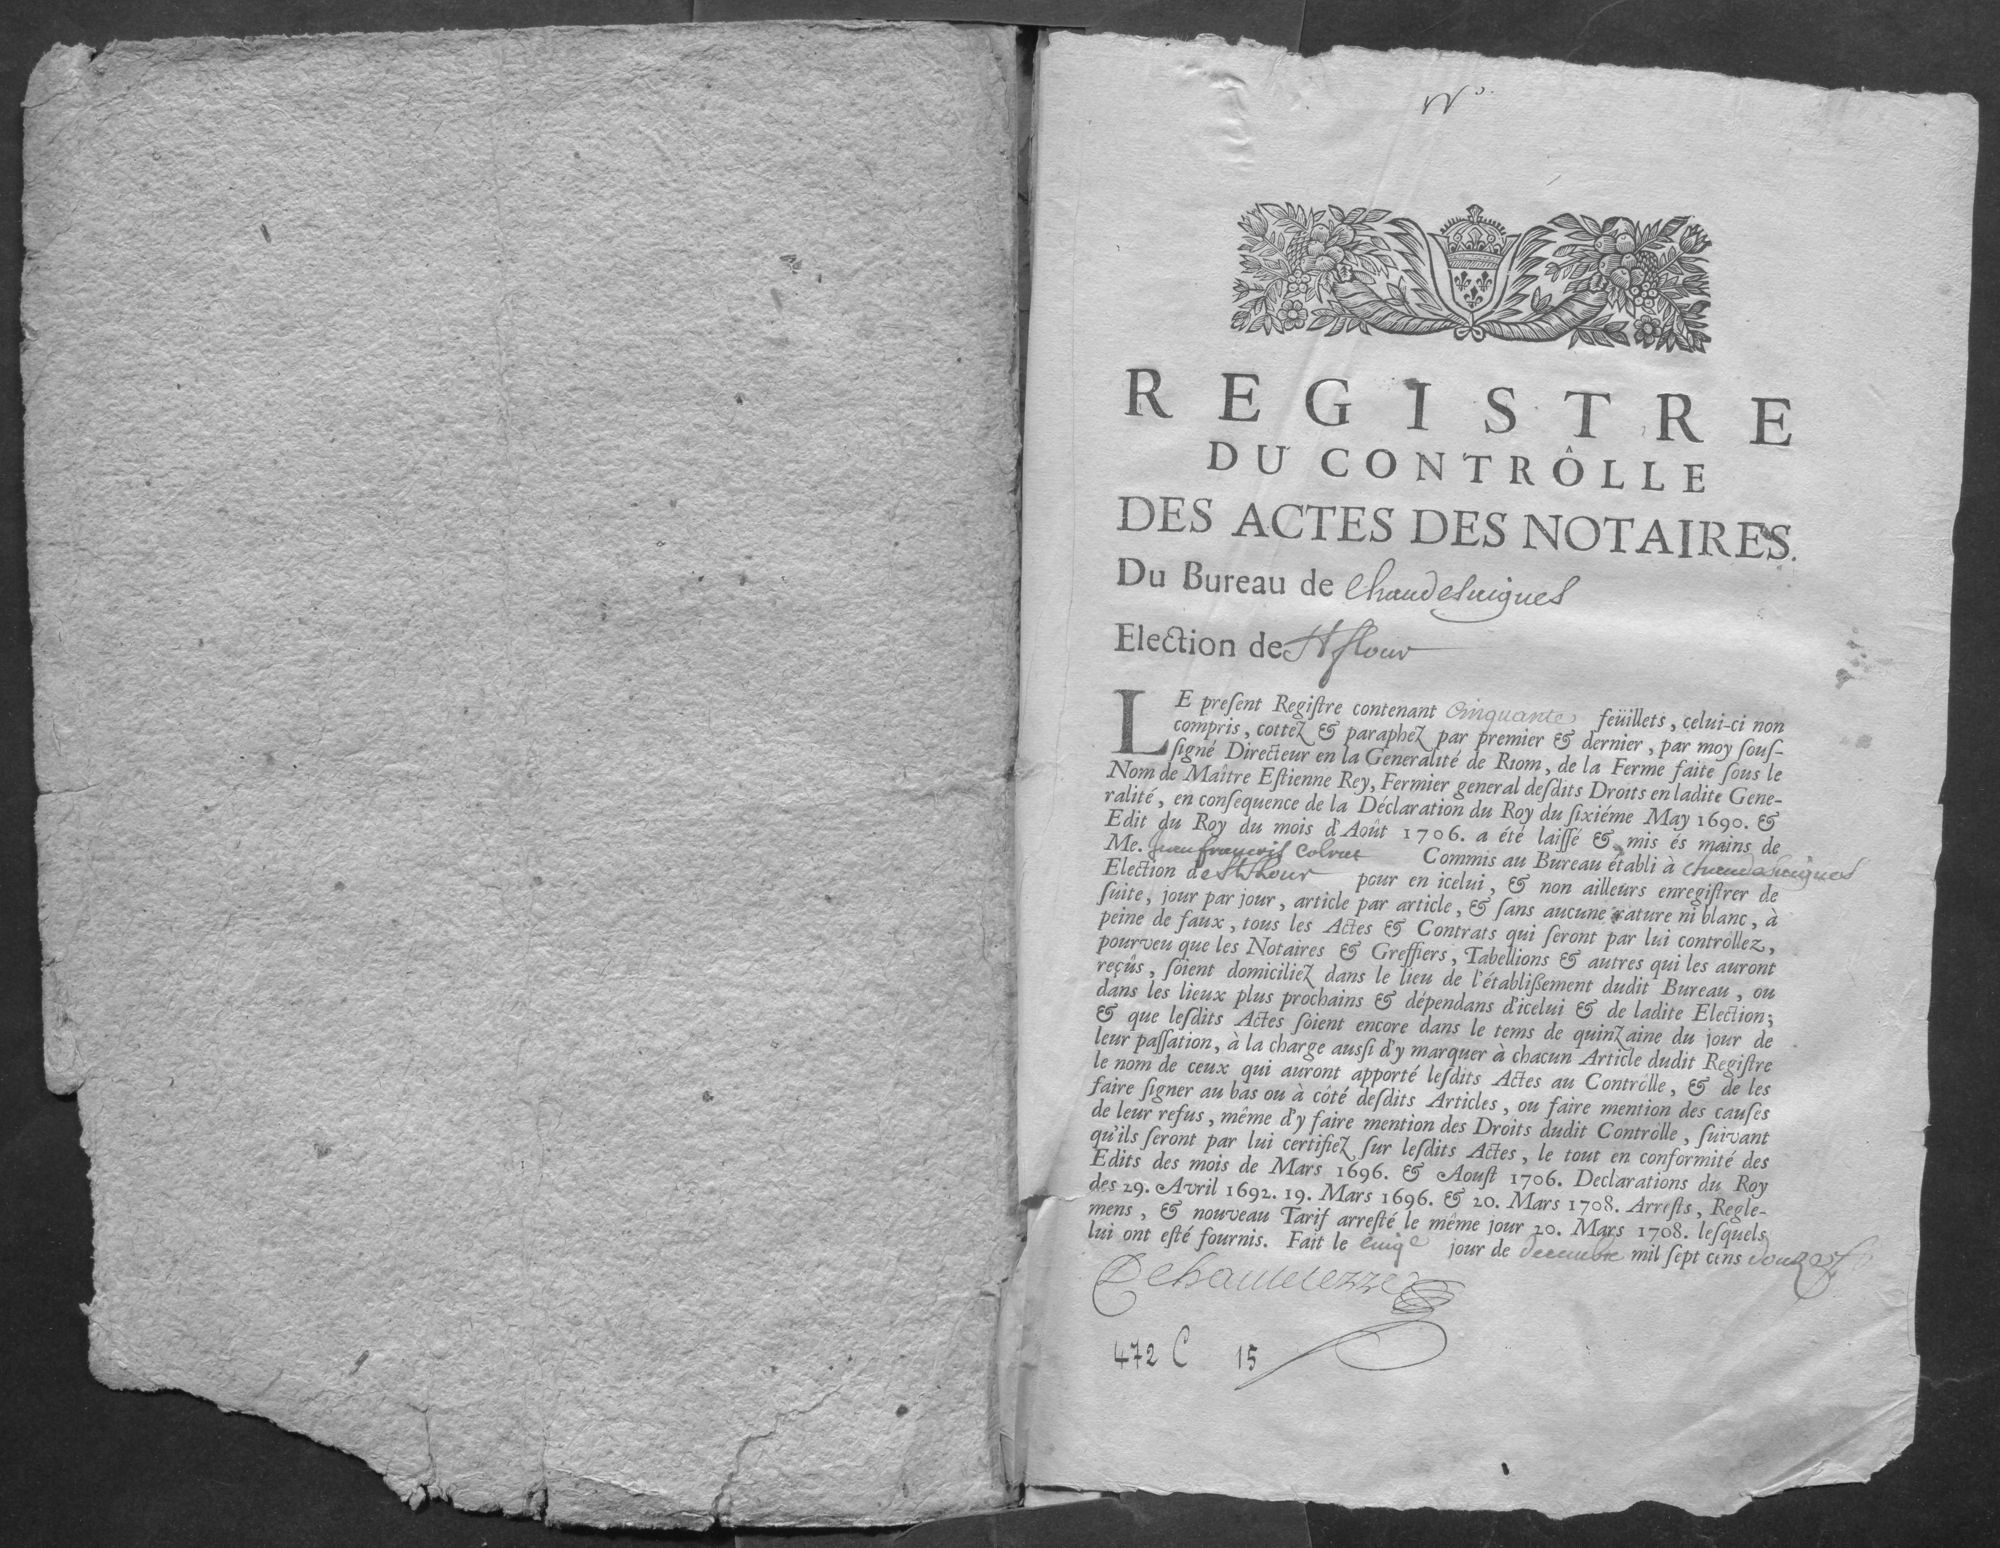 N°.
REGISTRE
DU CONTRÔLLE
DES ACTES DES NOTAIRES.
Du Bureau de Chaudesaigues
Election de St flour
LE preſent Regiſtre contenant cinquante feüillets, celui-ci non
compris, cottez & paraphez par premier & dernier, par moy ſouſ-
ſigné Directeur en la Generalité de Riom, de la Ferme faite ſous le
Nom de Maître Eſtienne Rey, Fermier general deſdits Droits en ladite Gene-
ralité, en conſequence de la Déclaration du Roy du ſixiéme May 1690. &
Edit du Roy du mois d'Août 1706. a été laiſſé & mis és mains de
Me. Jean françois Commis au Bureau établi à Chaudesaigues
Election de St flour pour en icelui, & non ailleurs enregiſtrer de
ſuite, jour par jour, article par article, & ſans aucune rature ni blanc, à
peine de faux, tous les Actes & Contrats qui ſeront par lui contrôllez,
pourveu que les Notaires & Greffiers, Tabellions & autres qui les auront
reçûs, ſoient domiciliez dans le lieu de l'établiſſement dudit Bureau, ou
dans les lieux plus prochains & dépendans d'icelui & de ladite Election;
& que leſdits Actes ſoient encore dans le tems de quinzaine du jour de
leur paſſation, à la charge auſſi d'y marquer à chacun Article dudit Regiſtre
le nom de ceux qui auront apporté leſdits Actes au Contrôlle, & de les
faire ſigner au bas ou à côté deſdits Articles, ou faire mention des cauſes
de leur refus, même d'y faire mention des Droits dudit Contrôlle, ſuivant
qu'ils ſeront par lui certifiez ſur leſdits Actes, le tout en conformité des
Edits des mois de Mars 1696. & Aouſt 1706. Declarations du Roy
des 29. Avril 1692. 19. Mars 1696. & 20. Mars 1708. Arreſts, Regle-
mens, & nouveau Tarif arreſté le même jour 20. Mars 1708. leſquels
lui ont eſté fournis. Fait le cinqe jour de decembre mil ſept cens douze
472 C 15